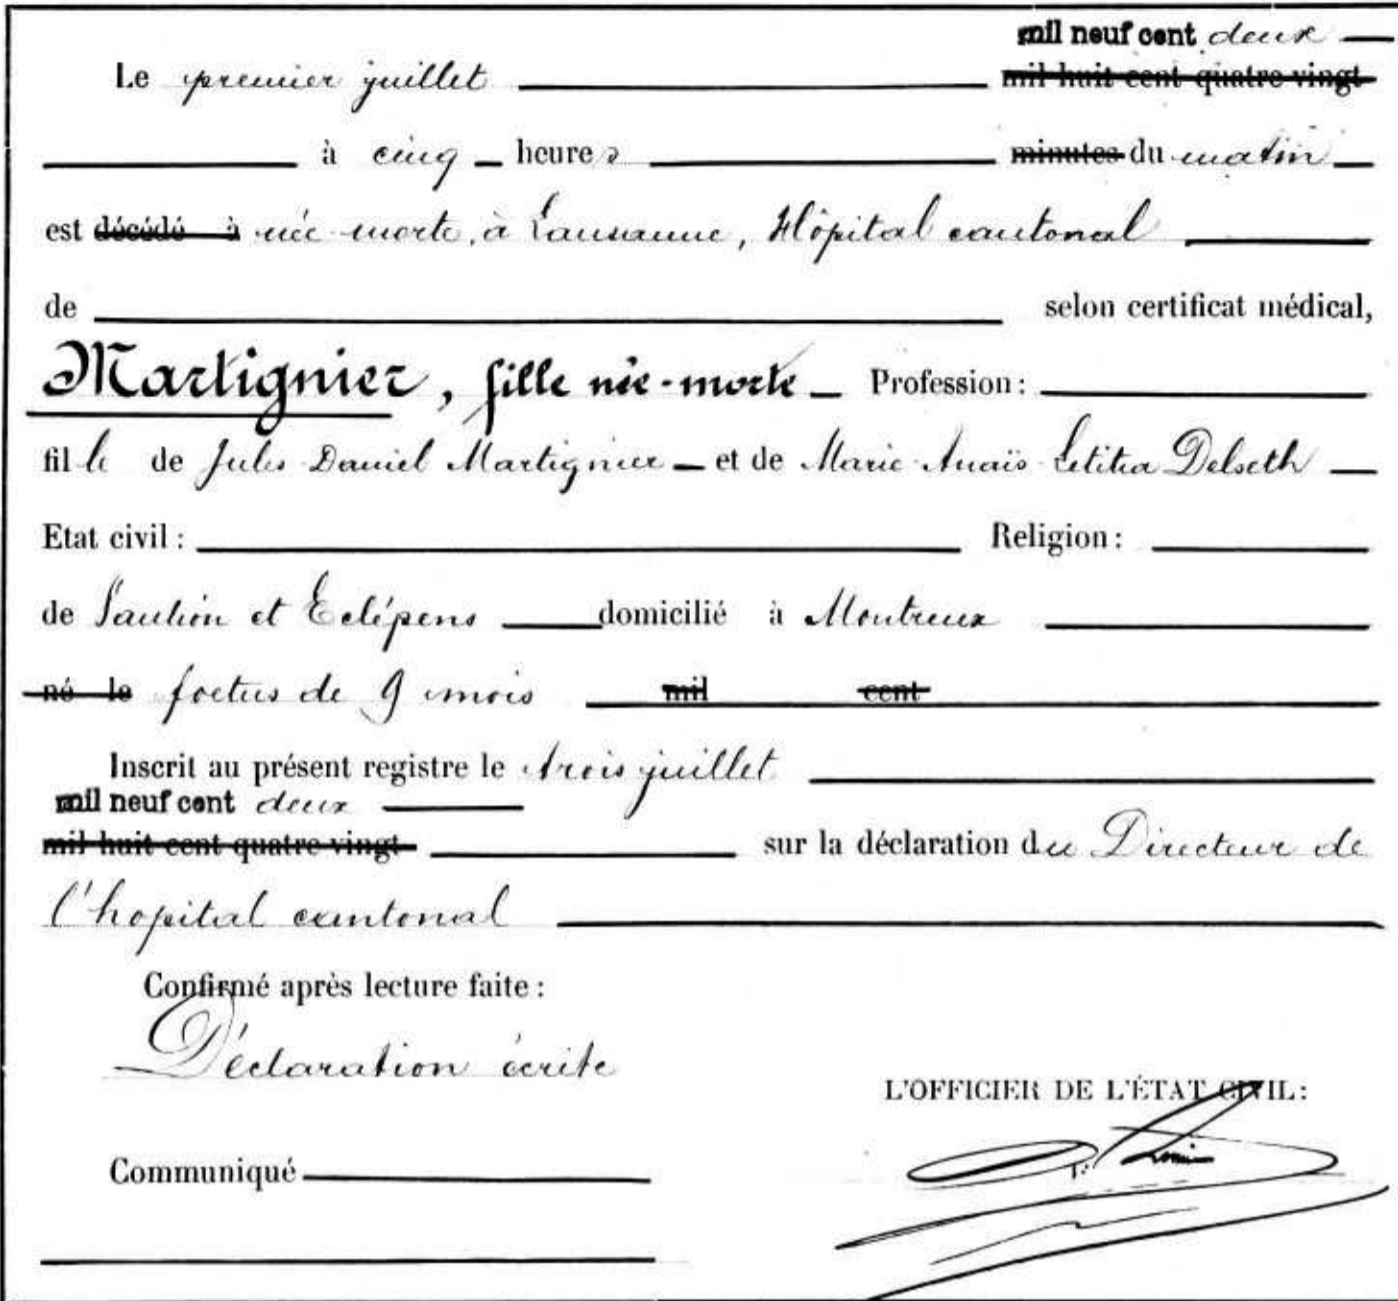 mil neuf cent deux
Le premier juillet mil huit cent quatre vingt
à cinq heures minutes du matin
est décédé à née morte, à Lausanne, Hôpital cantonal
de selon certificat médical,
Martignier, fille née-morte Profession:
fille de Jules Daniel Martignier et de Marie Anaïs Letitia Delseth
Etat civil: Religion:
de Vaulion et Eclépens domicilié à Montreux
né le foetus de 9 mois mil cent
Inscrit au présent registre le trois juillet
mil neuf cent deux
mil huit cent quatre vingt sur la déclaration du Directeur de
l'hopital cantonal
Confirmé après lecture faite:
Déclaration écrite
L'OFFICIER DE L'ÉTAT CIVIL:
Communiqué